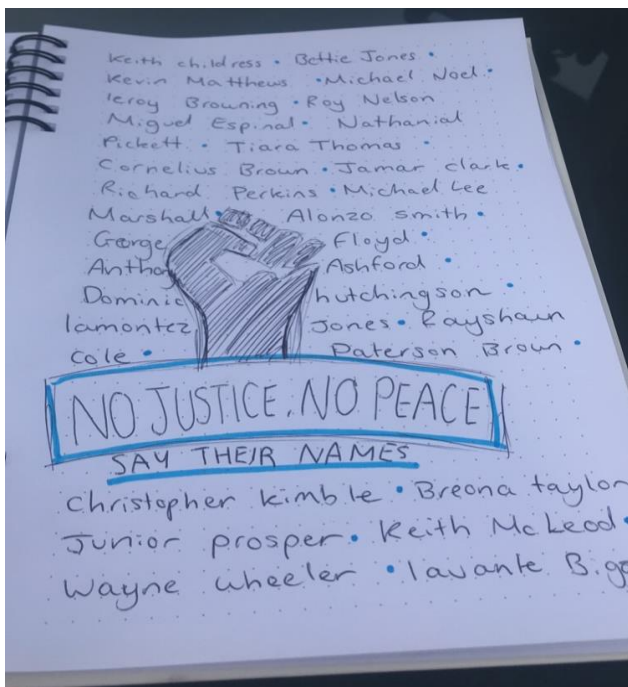 Keith childress • Bettie Jones •
Kevin Matthews • Michael Noel •
leroy Browning • Roy Nelson
Miguel Espinal • Nathanial
Pickett • Tiara Thomas •
Cornelius Brown • Jamar clark •
Richard Perkins • Michael Lee
Marshall • Alonzo smith •
George Floyd •
Anthony Ashford •
Dominic hutchingson •
lamontez Jones • Rayshawn
Cole • Paterson Brown •
NO JUSTICE. NO PEACE
SAY THEIR NAMES
Christopher kimble • Breona taylor
Junior prosper • Keith McLeod •
Wayne wheeler • lavante